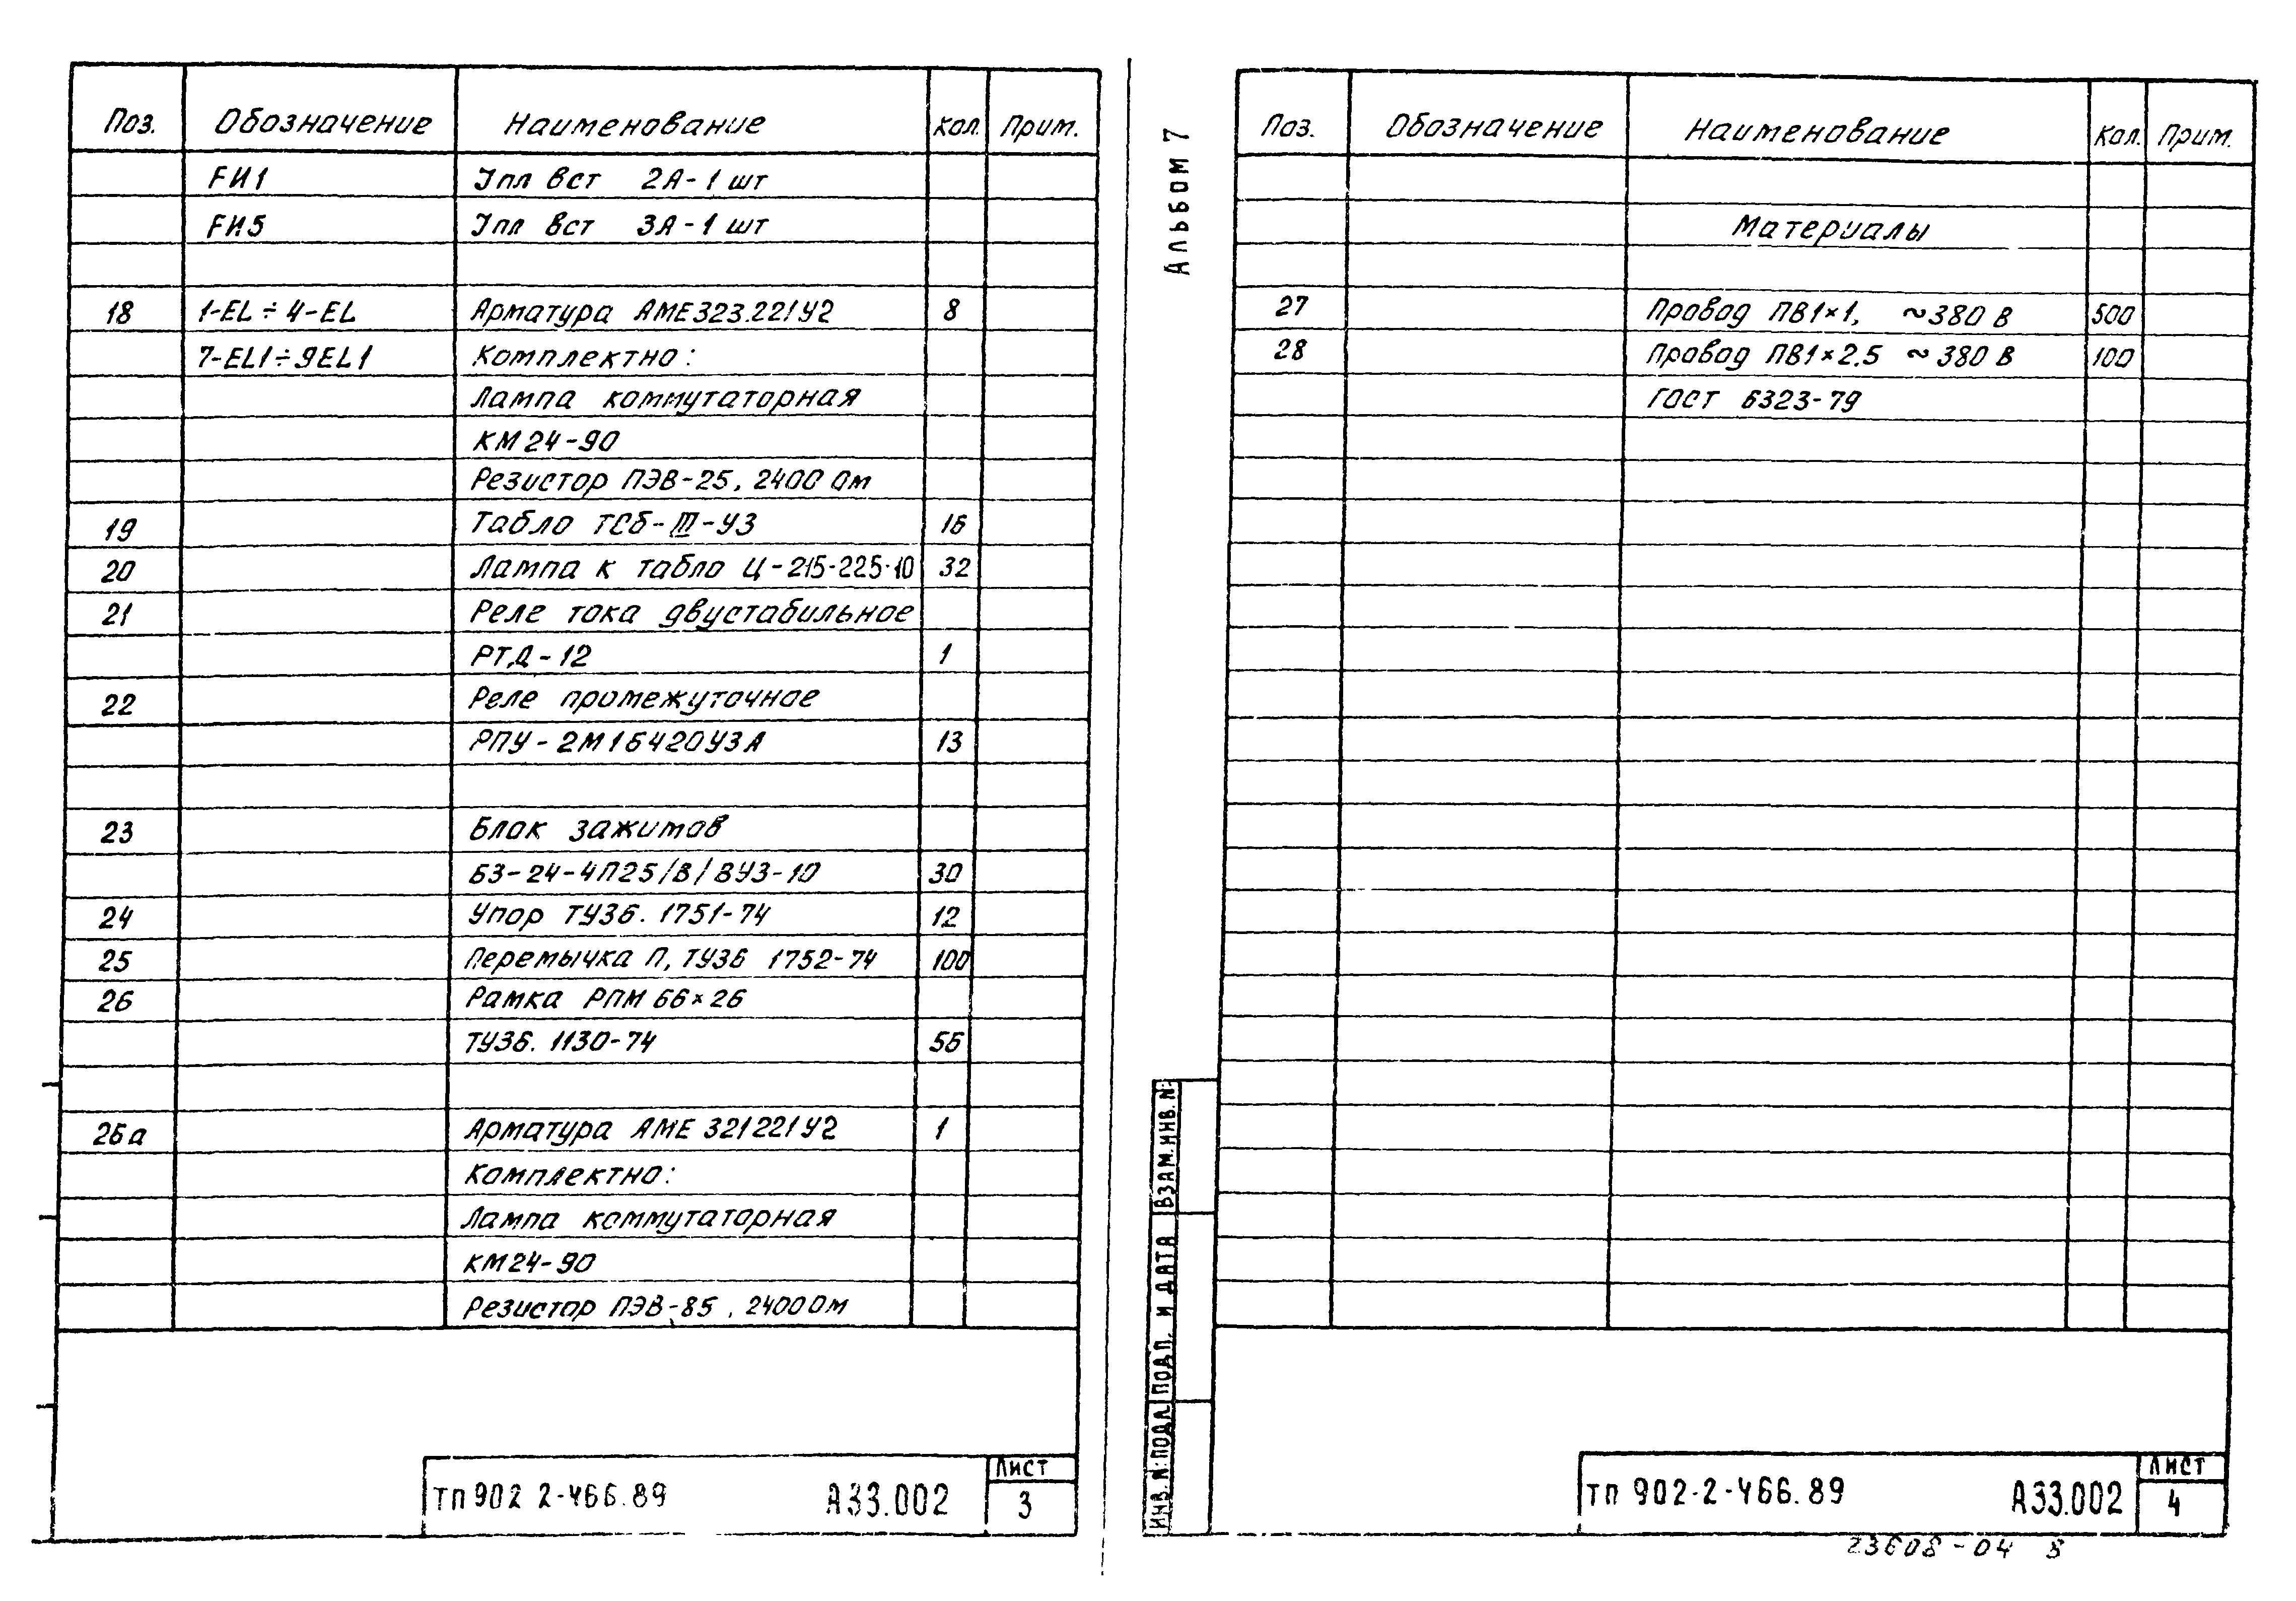 Поз. Обозначение Наименование Кол. Прим.
FИ1 Iпл вст 2А-1 шт
FИ5 Iпл вст 3А-1 шт
18 1-EL ÷ 4-EL Арматура АМЕ323.221У2 8
7-EL1÷9EL1 Комплектно:
Лампа коммутаторная
КМ24-90
Резистор ПЭВ-25, 2400 Ом
19 Табло ТСб-III-У3 16
20 Лампа к табло Ц-215-225-10 32
21 Реле тока двустабильное
РТД-12 1
22 Реле промежуточное
РПУ-2М16420У3А 13
23 Блок зажимов
БЗ-24-4П25/В/ВУ3-10 30
24 Упор ТУ36. 1751-74 12
25 Перемычка П, ТУ36 1752-74 100
26 Рамка РПМ 66×26
ТУ36. 1130-74 56
26а Арматура АМЕ 321221У2 1
Комплектно:
Лампа коммутаторная
КМ24-90
Резистор ПЭВ-85, 2400 Ом
ТП 902 2-466.89 А33.002
Лист
3
Альбом 7
Поз. Обозначение Наименование Кол. Прим.
Материалы
27 Провод ПВ1×1, ~380 В 500
28 Провод ПВ1×2.5 ~380 В 100
ГОСТ 6323-79
Взам. инв. №
Подп. и дата
Инв. № подл
ТП 902-2-466.89 А33.002
Лист
4
23608-04 8